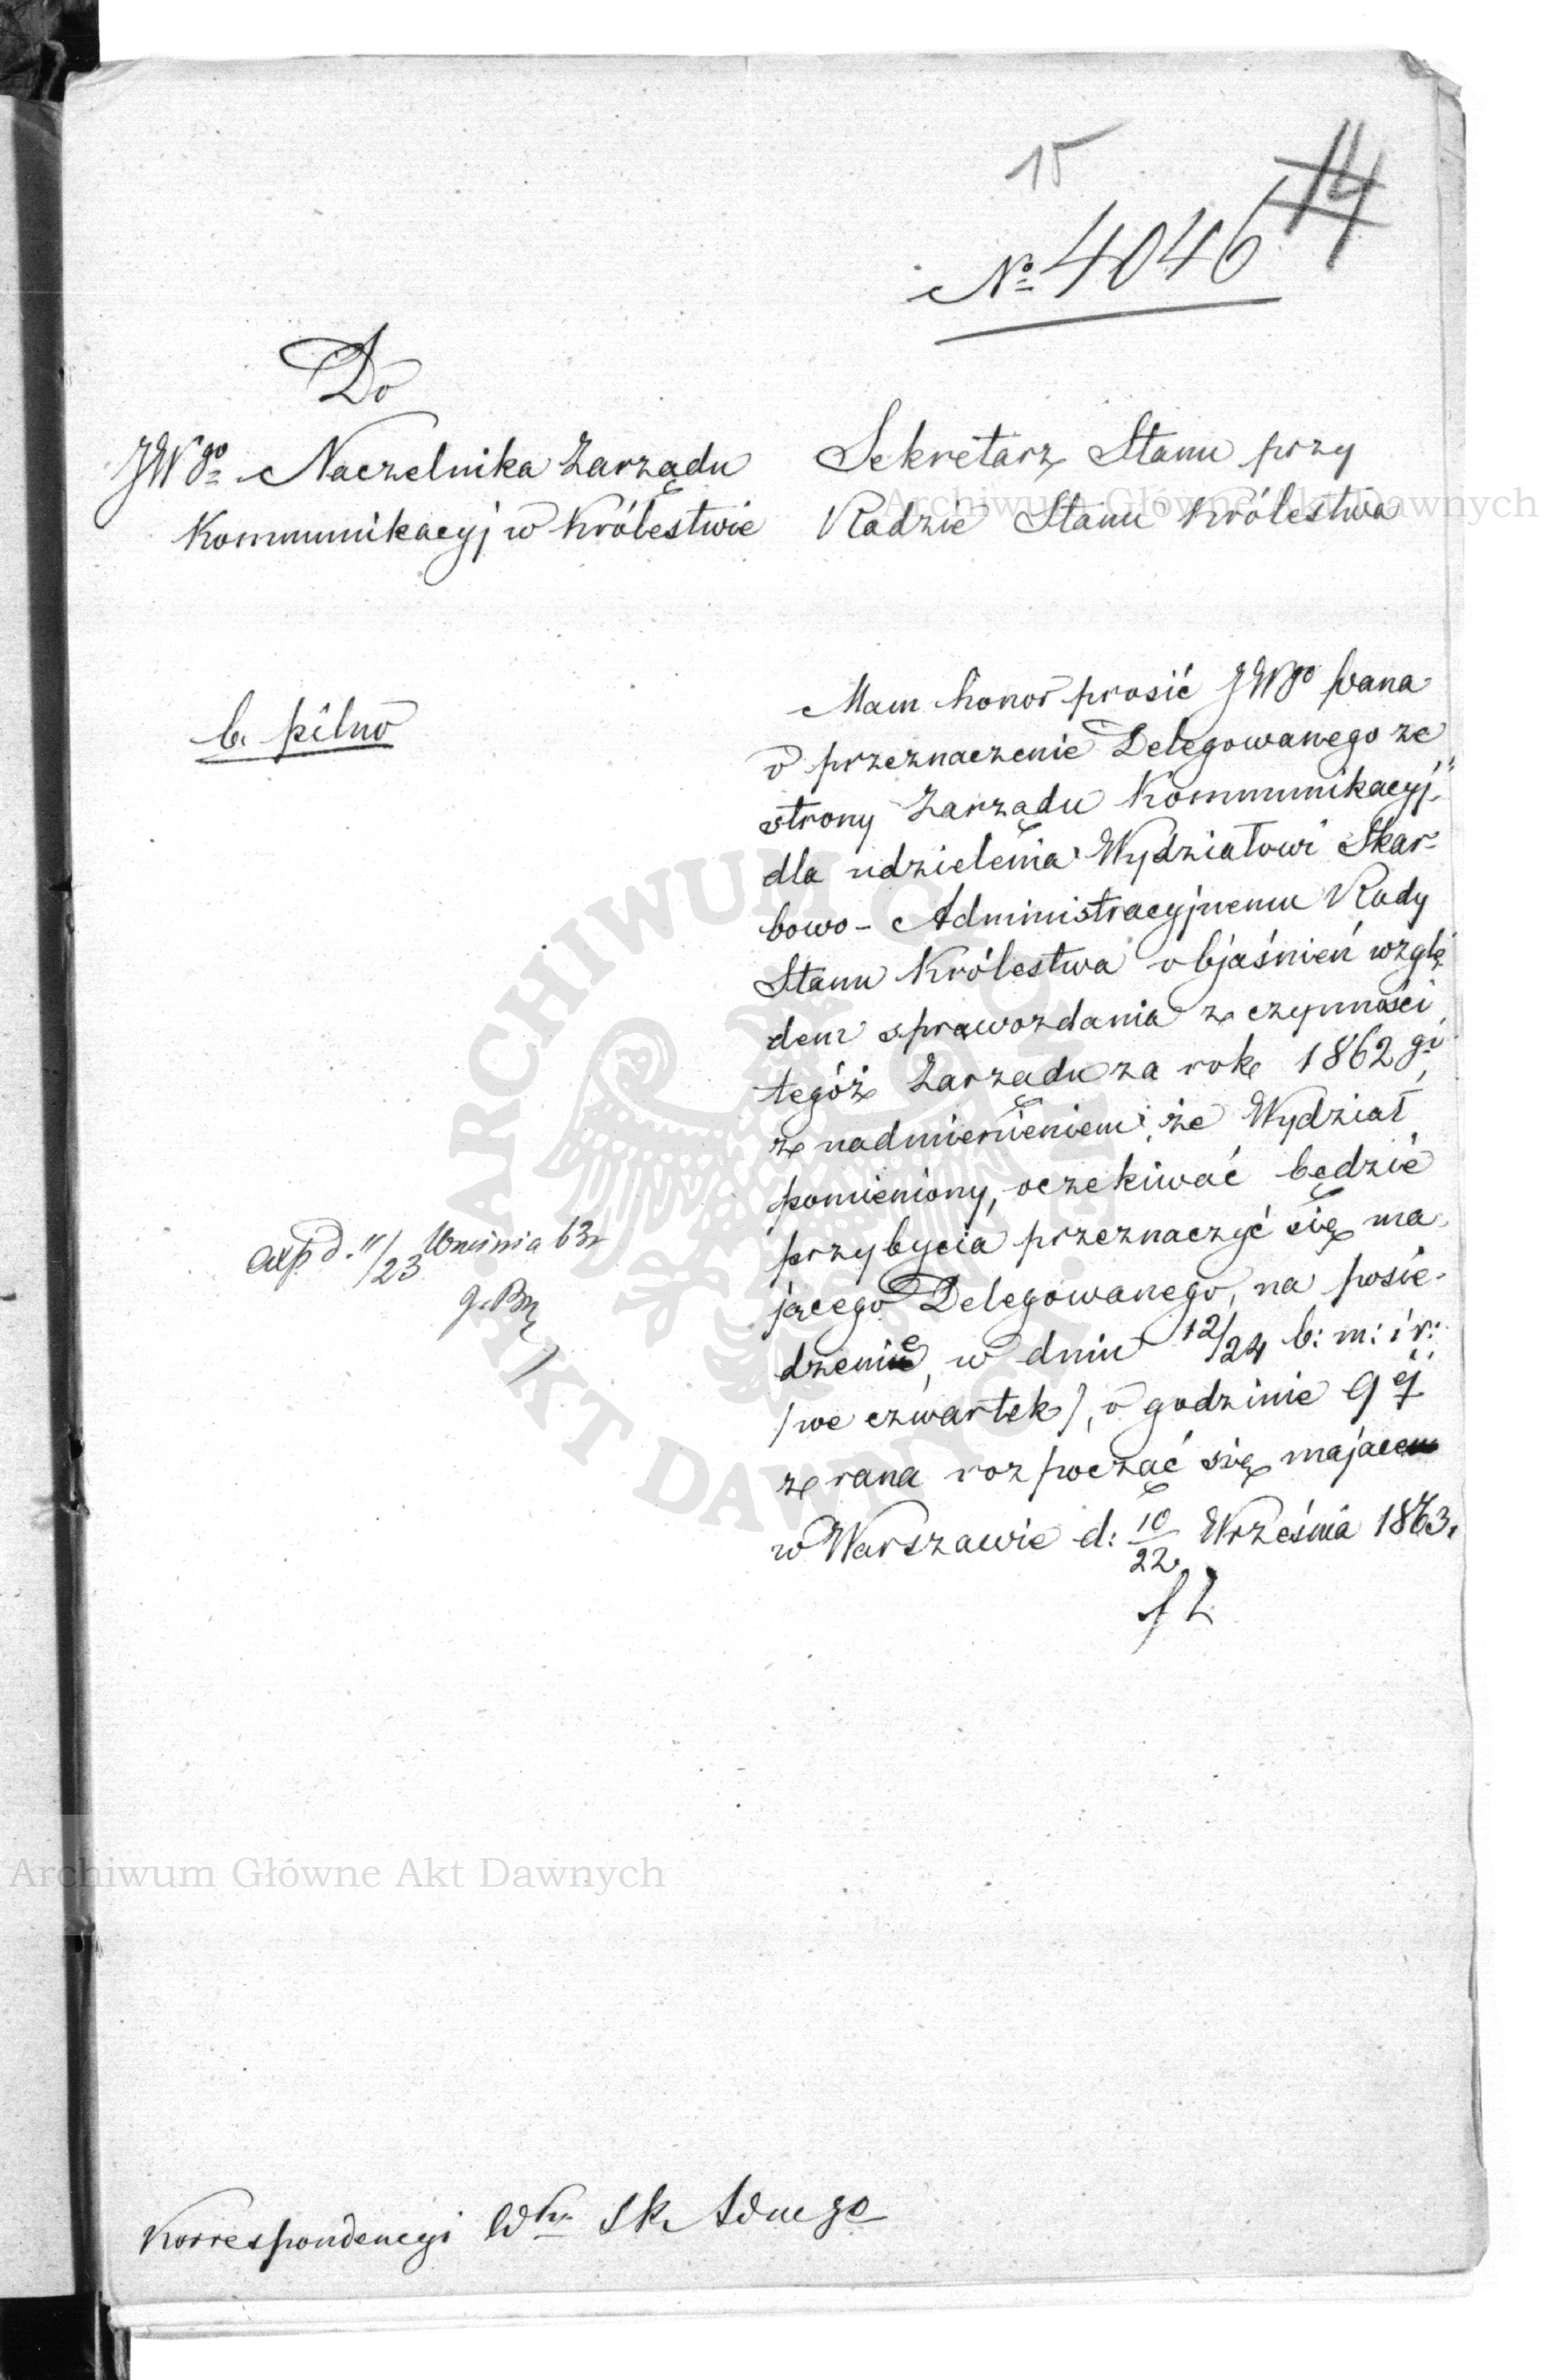 15
14
№ 4046
Do
JWgo Naczelnika Zarządu
Kommunikacyj w Królestwie
Sekretarz Stanu przy
Radzie Stanu Królestwa
b. pilno
Mam honor prosić JWgo Pana
o przeznaczenie Delegowanego ze
strony Zarządu Kommunikacyj,
dla udzielenia Wydziałowi Skar-
bowo-Administracyjnemu Rady
Stanu Królestwa objaśnień wzglę
dem sprawozdania z czynności
tegóż Zarządu za rok 1862gi,
z nadmienieniem, że Wydział
pomieniony, oczekiwać będzie
przybycia przeznaczyć się ma-
jącego Delegowanego, na posie-
dzenie, w dniu 12/24 b: m: i r:
/we czwartek/, o godzinie 9ej
z rana rozpocząć się mające
w Warszawie d: 10/22 Września 1863.
exp d. 11/23 Września 63r
Korrespondencyi Włu Sk Adnego
Archiwum Główne Akt Dawnych
Archiwum Główne Akt Dawnych
ARCHIWUM GŁÓWNE AKT DAWNYCH